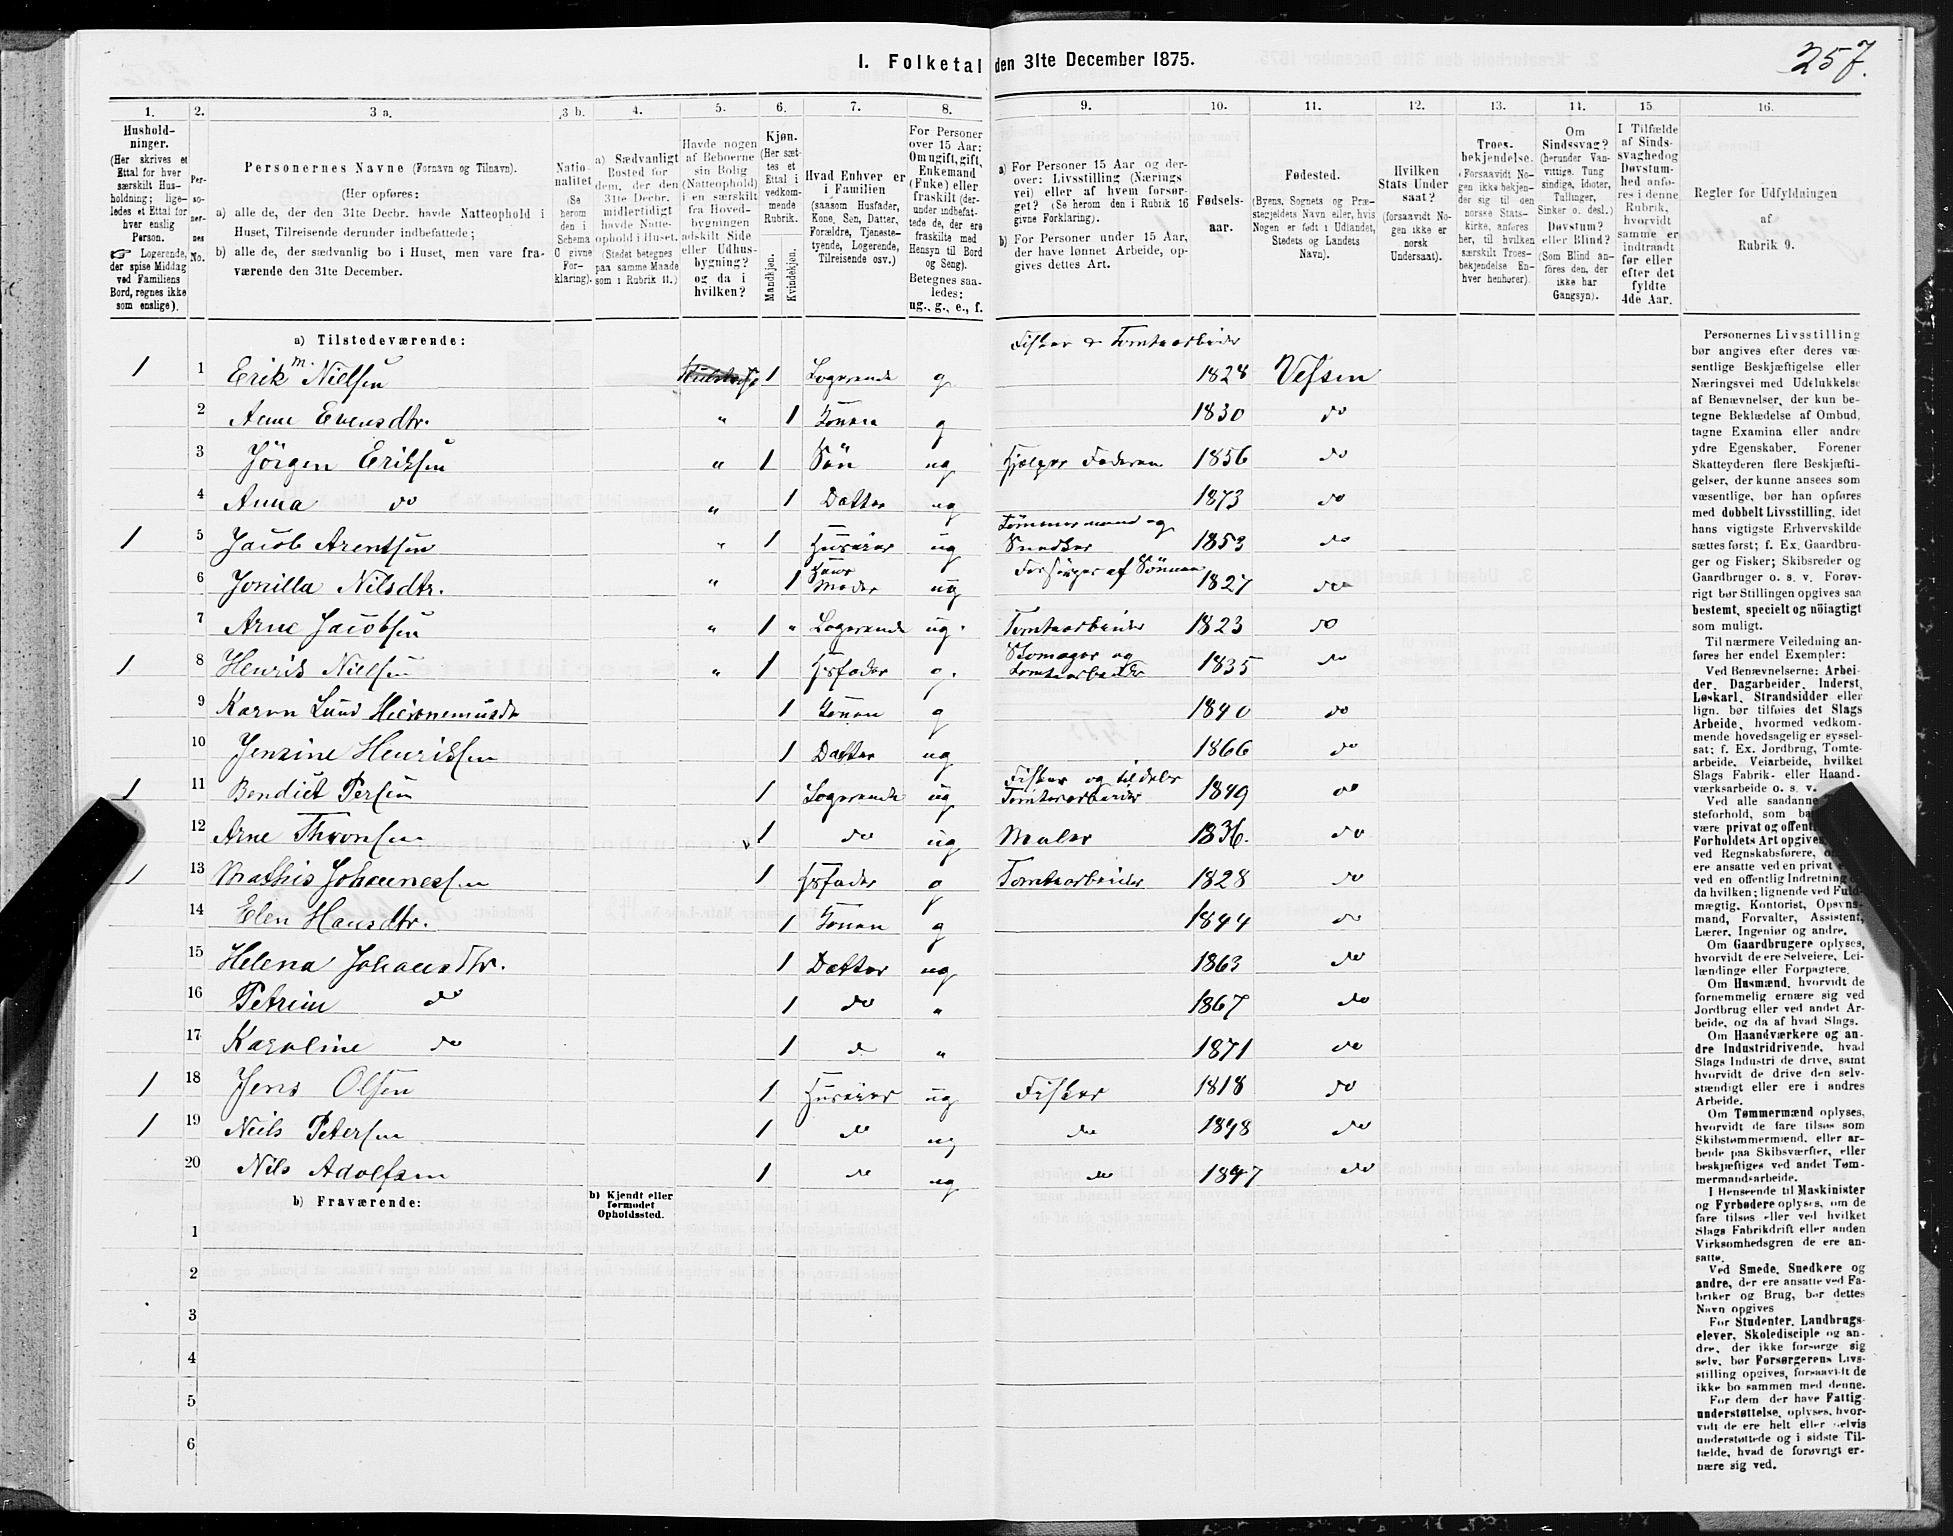 257.
I. Folketal den 31te December 1875.
1. 2. 3 a. 3 b. 4. 5. 6. 7. 8. 9. 10. 11. 12. 13. 14. 15 16.
Hushold-
ninger.
(Her skrives et
Ettal for hver
særskilt Hus-
holdning; lige-
ledes et Ettal for
hver enslig
Person.
☞ Logerende,
der spise Middag
ved Familiens
Bord, regnes ikke
som enslige).
Per-
so-
ner-
nes
No.
Personernes Navne (Fornavn og Tilnavn).
(Her opføres:
a) alle de, der den 31te Decbr. havde Natteophold i
Huset, Tilreisende derunder indbefattede;
b) alle de, der sædvanlig bo i Huset, men vare fra-
værende den 31te December.
Natio-
nalitet
(Se
herom
den i
Schema
O givne
For-
klaring).
a) Sædvanligt
Bosted for
dem, der den
31te Decbr.
midlertidigt
havde Natte-
ophold i Huset.
(Stedet betegnes
paa samme Maade
som i Rubrik 11.)
Havde nogen
af Beboerne
sin Bolig
(Natteophold)
i en særskilt
fra Hoved-
bygningen
adskilt Side
eller Udhus-
bygning?
og da i
hvilken?
Kjøn.
(Her sæt-
tes et
Ettal i
vedkom-
mende
Rubrik.
Mandkjøn.
Kvindekjøn.
Hvad Enhver er
i Familien
(saasom Husfader,
Kone, Søn, Datter,
Forældre, Tjeneste-
tyende, Logerende,
Tilreisende osv.)
For Personer
over 15 Aar:
Om ugift, gift,
Enkemand
(Enke) eller
fraskilt (der-
under indbefat-
tede de, der ere
fraskilte med
Hensyn til Bord
og Seng).
Betegnes saa-
ledes:
ug., g., e., f.
a) For Personer 15 Aar og der-
over: Livsstilling (Nærings
vei) eller af hvem forsør-
get? (Se herom den i Rubrik 16
givne Forklaring).
b) For Personer under 15 Aar,
der have lønnet Arbeide, op-
gives dettes Art.
Fødsels-
aar.
Fødested.
(Byens, Sognets og Præ-
stegjeldets Navn eller, hvis
Nogen er født i Udlandet,
Stedets og Landets
Navn).
Hvilken
Stats Under
saat?
(forsaavidt No-
gen ikke er
norsk
Undersaat).
Troes-
bekjendelse.
(Forsaavidt No-
gen ikke bekjen-
der sig til den
norske Stats-
kirke, anføres
her, til hvilken
særskilt Troes-
bekjendelse En-
hver henhører).
Om
Sindssvag?
(herunder Van-
vittige, Tung
sindige, Idioter,
Tullinger,
Sinker o. desl.)
Døvstum?
eller Blind?
(Som Blind an-
føres den, der
ikke har
Gangsyn).
I Tilfælde
af Sinds-
svaghed og
Døvstum-
hed anfø-
res i denne
Rubrik,
hvorvidt
samme er
indtraadt
før eller
efter det
fyldte
4de Aar.
Regler før Udfyldningen
af
Rubrik 9.
a) Tilstedeværende:
Fisker & Tomtearbeider
1 1 Erik M. Nielsen 1 Logerende g 1828 Vefsen
2 Anne Evensdtr. " 1 Konen g 1830 do
3 Jörgen Eriksen " 1 Sön ug Hjælper Faderen 1856 do
4 Anna do " 1 Datter ug 1873 do
Tömmermand og
1 5 Jacob Arentsen " 1 Huseier ug Snedker 1853 do
Hans Forsörges af Sönnen
6 Jonilla Nilsdtr. " 1 Moder ug 1827 do
7 Arne Jacobsen " 1 " Logerende ug. Tomtearbeider 1823 do
Skomager og
1 8 Henrik Nielsen " 1 Hsfader g. Tomtearbeider 1835 do
9 Karen Lund Hieronemusdr 1 Konen g 1840 do
10 Jensine Henriksen 1 Datter ug 1866 do
Fisker og tildels
1 11 Bendict Persen 1 Logerende ug Tomtearbeider 1849 do
12 Arne Thronsen 1 do ug Maler 1836. do
1 13 Mathis Johannessen 1 Hsfader g Tomtearbeider 1828 do
14 Elen Hansdtr. 1 Konen g 1844 do
15 Helena Johansdtr. 1 Datter ug 1863 do
16 Petrine do 1 do " 1867 do
17 Karoline do 1 d " 1871 do
1 18 Jens Olsen 1 Huseier ug Fisker 1818 do
1 19 Neils Petersen 1 do ug do 1848 do
20 Nils Adolfsen 1 do ug do 1847 do
b) Fraværende:
b) Kjendt eller
formodet
Opholdssted.
1
2
3
4
5
6
Personernes Livsstilling
bør angives efter deres væ-
sentlige Beskjæftigelse eller
Næringsvei med Udelukkelse
af Benævnelser, der kun be-
tegne Beklædelse af Ombud,
tagne Examina eller andre
ydre Egenskaber. Forener
Skatteyderen flere Beskjæfti-
gelser, der kunne ansees som
væsentlige, bør han opføres
med dobbelt Livsstilling, idet
hans vigtigste Erhvervskilde
sættes først; f. Ex. Gaardbru-
ger og Fisker; Skibsreder og
Gaardbruger o. s. v. Forøv-
rigt bør Stillingen opgives saa
bestemt, specielt og nöiagtigt
som muligt.
Til nærmere Veiledning an-
føres her endel Exempler:
Ved Benævnelserne: Arbei-
der, Dagarbeider, Inderst,
Løskarl, Strandsidder eller
lign. bør tilføies det Slags
Arbeide, hvormed vedkom-
mende hovedsagelig er syssel-
sat; f. Ex. Jordbrug, Tomte-
arbeide, Veiarbeide, hvilket
Slags Fabrik- eller Haand-
værksarbeide o. s. v.
Ved alle saadanne
steforhold, som
være privat og
Forholdets Art
ved Regnskabsførere,
ere ansatte ved en privat
ved en offentlig Indretning
da hvilken; lignende ved Fuld-
mægtig, Kontorist, Opsyns-
mand, Forvalter, Assistent,
Lærer, Ingeniør og andre.
Om Gaardbrugere oplyses,
hvorvidt de ere Selveiere, Lei-
lændinge eller Forpagtere.
Om Husmænd, hvorvidt de
fornemmelig ernære sig ved
Jordbrug eller ved andet Ar-
beide, og da af hvad Slags.
Om Haandværkere og an-
dre Industridrivende, hvad
Slags Industri de drive, samt
hvorvidt de drive den selv-
stændigt eller ere i andres
Arbeide.
Om Tømmermænd oplyses,
hvorvidt de fare tilsøs som
Skibstømmermænd, eller ar-
beide paa Skibsværfter, eller
beskjæftiges ved andet Tøm-
mermandsarbeide.
I Henseende til Maskinister
og Fyrbødere oplyses, om de
fare tilsøs eller ved hvilket
Slags Fabrikdrift eller anden
Virksomhedsgren de ere an-
satte.
Ved Smede, Snedkere og
andre, der ere ansatte ved Fa-
briker og Brug, bør dettes
Navn opgives
For Studenter, Landbrugs-
elever, Skoledisciple og an-
dre, der ikke forsørge sig
selv, bør Forsørgerens Livs-
stilling opgives, forsaavidt de
ikke bo sammen med denne.
For dem, der have Fattig-
understøttelse, oplyses, hvor-
vidt de ere helt eller delvis
understøttede og i sidste Til-
fælde, hvad de forøvrigt er-
nære sig ved.